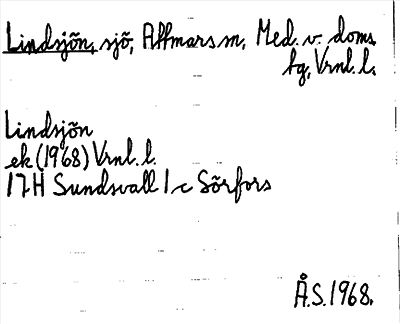 Lindsjön, sjö, Attmars sn, Med. v. doms.
tg, Vrnl. l.
Lindsjön
ek (1968) Vrnl. l.
17H Sundsvall 1c Sörfors
Å.S. 1968.